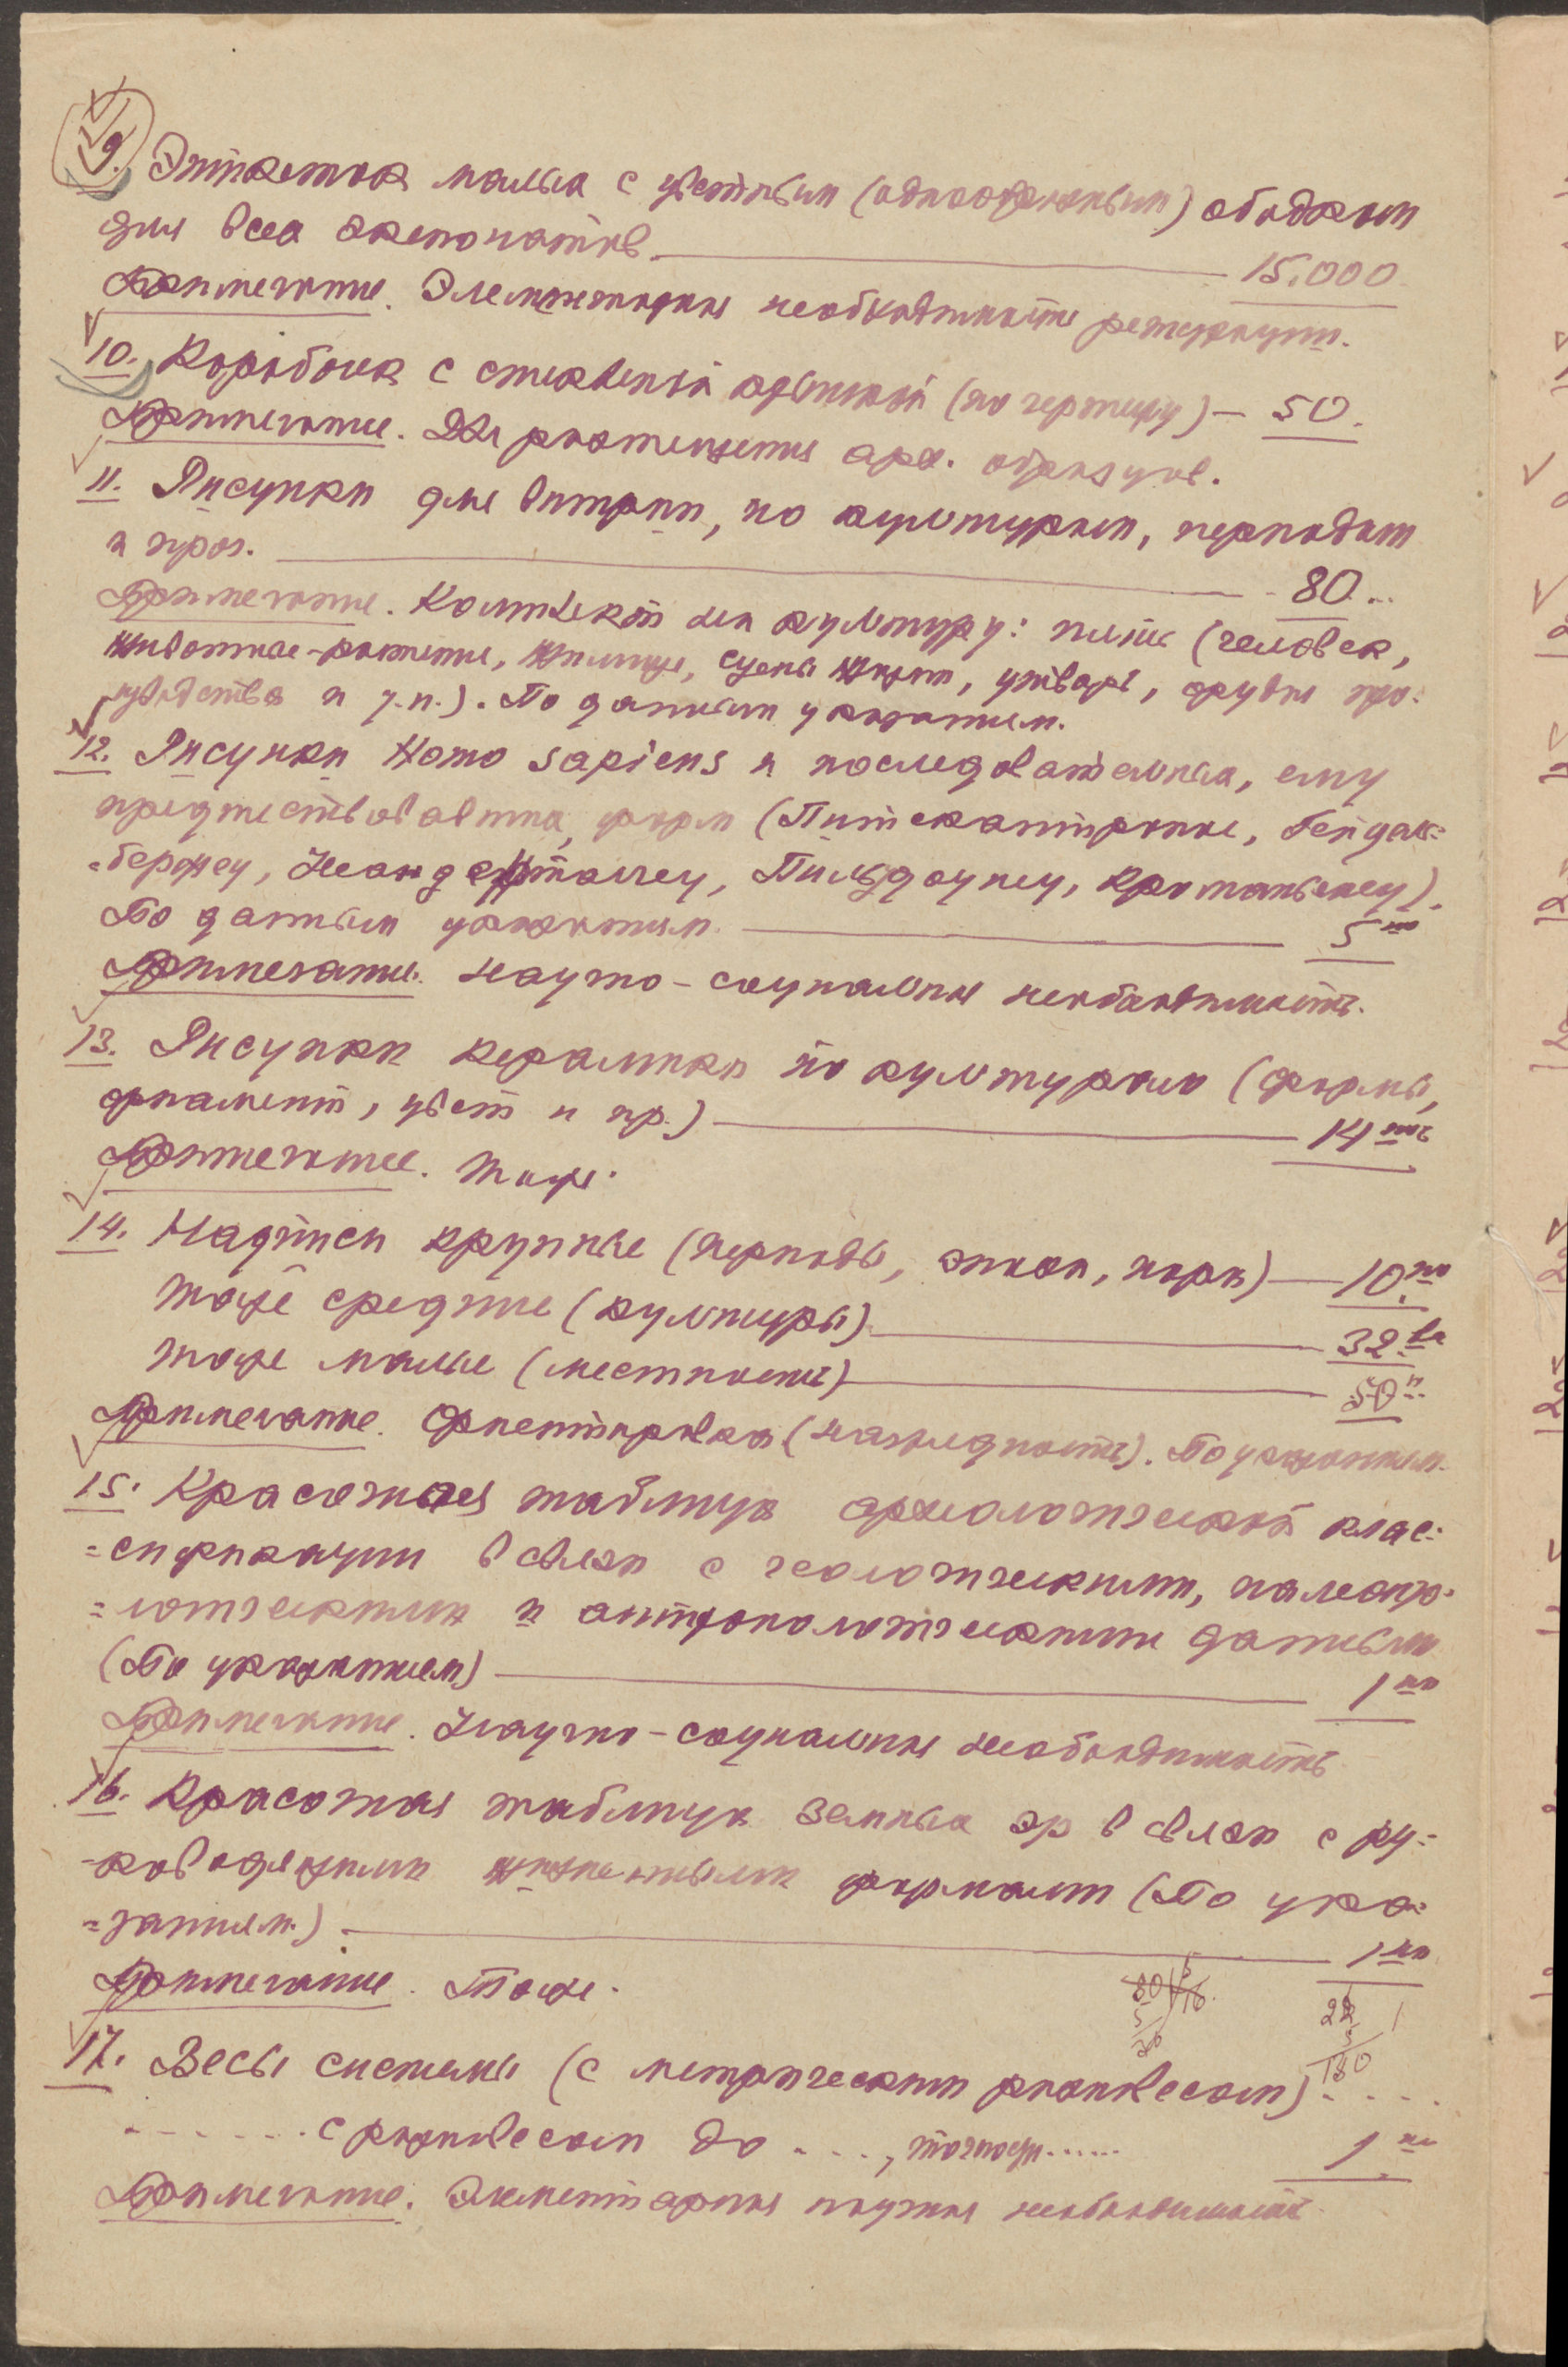 9. Этикеток малых с цветным (однообразным) ободком
для всех экспонатов. 15.000
Примечание. Элементарная необходимость регистрации.
10. Коробочек с стеклянной крышкой (по чертежу) – 50.
Примечание. Для размещения арх. образцов.
11. Рисунки для витрин, по культурам, периодам
и проч. 80..
Примечание. Комплект на культуру: пятъ (человек,
животные-растение, жилище, сцены жизни, утварь, орудия про-
изводства и т.п.). По данным указаниям.
12. Рисунки Homo sapiens и последовательных, ему
предшествовавших, форм (Питекантропине, Гейдель-
=бержец, Неандерталец, Пильдоунец, Кроманьонец).
По данным указаниям. 5ть
Примечание. Научно-социальная необходимость.
13. Рисунки керамики по культурам (формы,
орнамент, цвет и пр.) 14ть
Примечание. Тоже.
14. Надписи крупные (периоды, эпохи, поры) 10.ть
Тоже средние (культуры) 32.ва
Тоже малые (местность) 50.
Примечание. Ориентировка (наглядность). По указаниям.
15. Красочная таблица археологической клас-
=сификации в связи с геологическими, палеонто-
=логическими и антропологическими данными
(По указаниям) 1на
Примечание. Научно-социальная необходимость
16. Красочная таблица земных эр в связи с ру-
-ководящими жизненными формами (По ука-
=заниям.) 1на
Примечание. Тоже.
17. Весы системы (с метрическим разновесом) . . . .
. . . . . . с разновесом до . . . ., точност. . . . . . 1ни
Примечание. Элементарная научная необходимость.